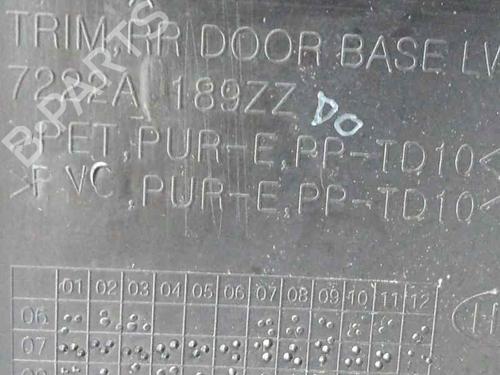 TRIM,RR DOOR BASE LV
7222A 189ZZ DO
>PET,PUR-E,PP-TD10<
>PVC,PUR-E,PP-TD10<
01 02 03 04 05 06 07 08 09 10 11 12
06
07
B-PARTS